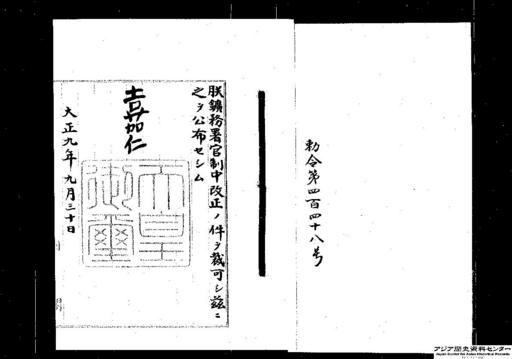 勅令第四百四十八号
朕鑛務署官制中改正ノ件ヲ裁可シ茲ニ
之ヲ公布セシム
嘉仁
天皇
御璽
大正九年九月三十日
アジア歴史資料センター
Japan Center for Asian Historical Records